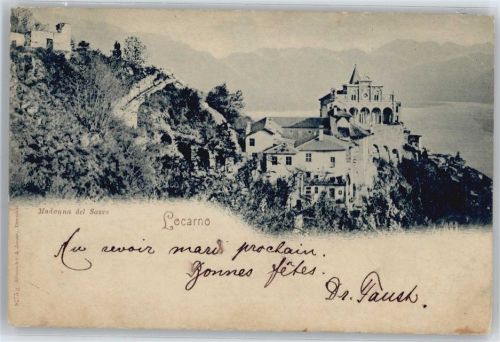 Madonna del Sasso
Locarno
Au revoir mardi prochain.
Bonnes fêtes.
Dr. Faust.